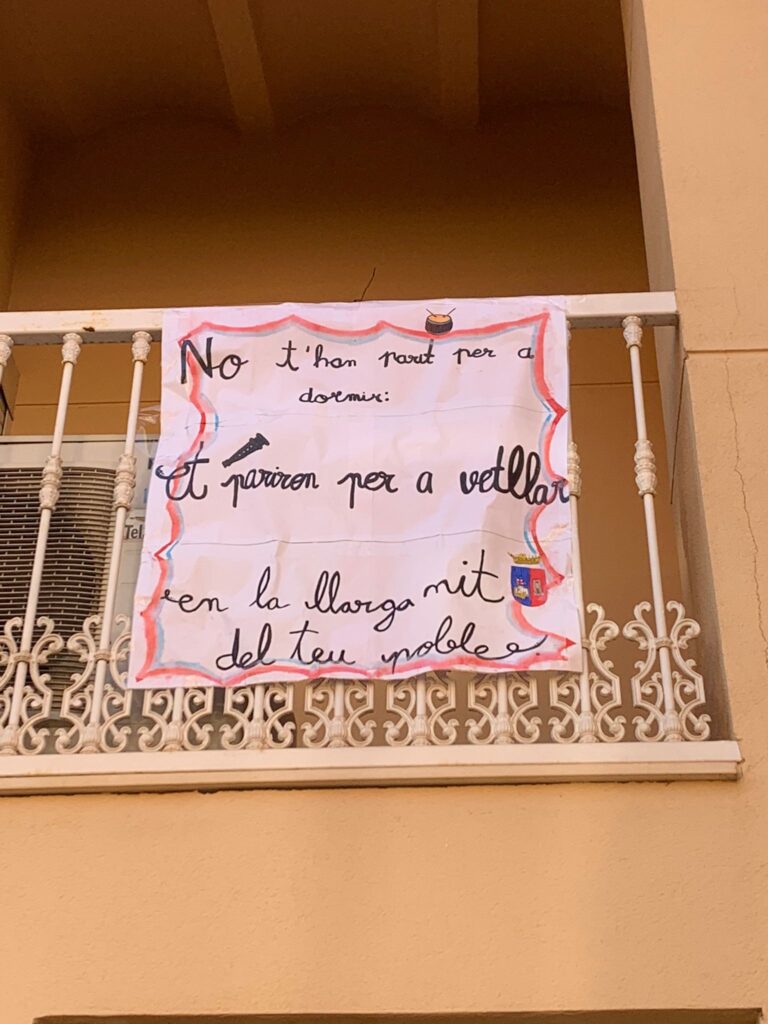 No t'han parit per a
dormir:
et pariren per a vetllar
en la llarga nit
del teu poble
Tel